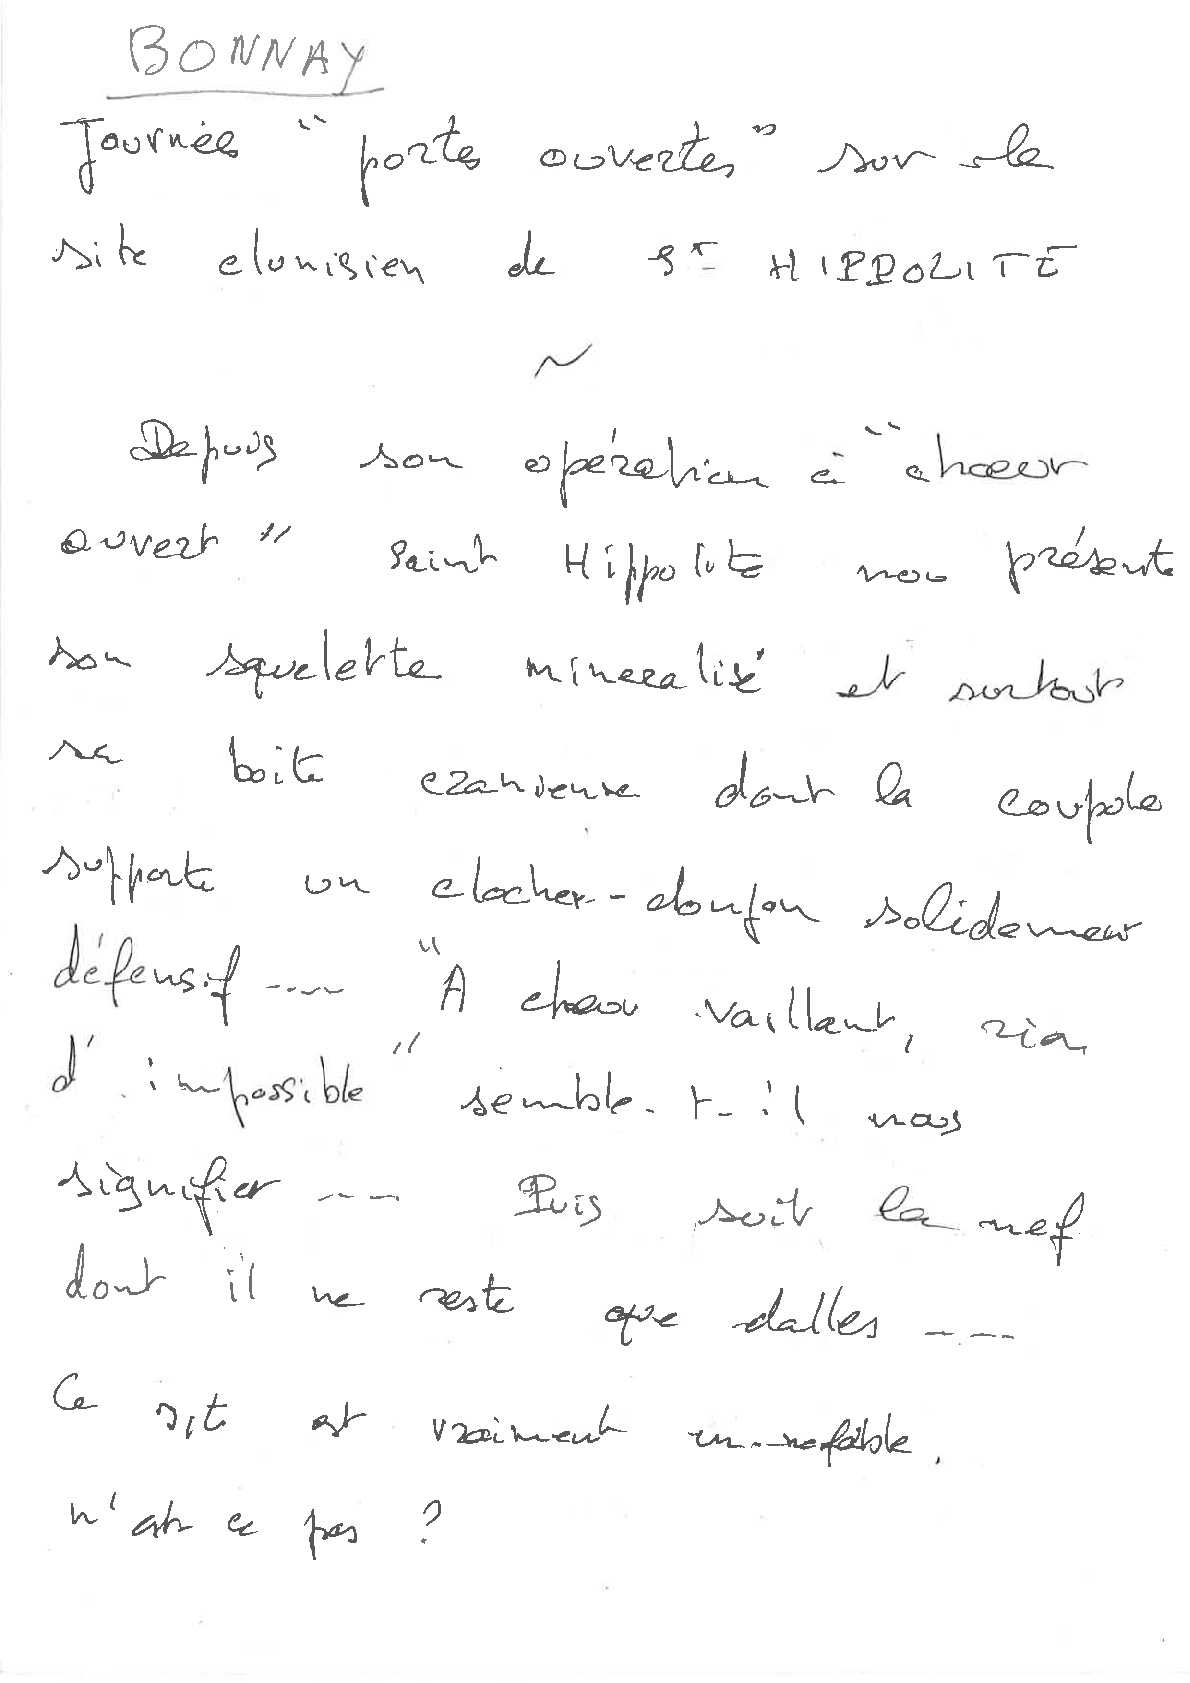 BONNAY
Journées "portes ouvertes" sur le
site clunisien de St HIPPOLITE
~
Depuis son opération à "chœur
ouvert" Saint Hippolite nous présente
son squelette minéralisé et surtout
sa boite cranienne dont la coupole
supporte un clocher-donjon solidement
défensif .... "A chœur vaillant, rien
d'impossible" semble-t-il nous
signifier --- Puis suit la nef
dont il ne reste que dalles ---
Ce site est vraiment in-nefable.
n'est ce pas ?